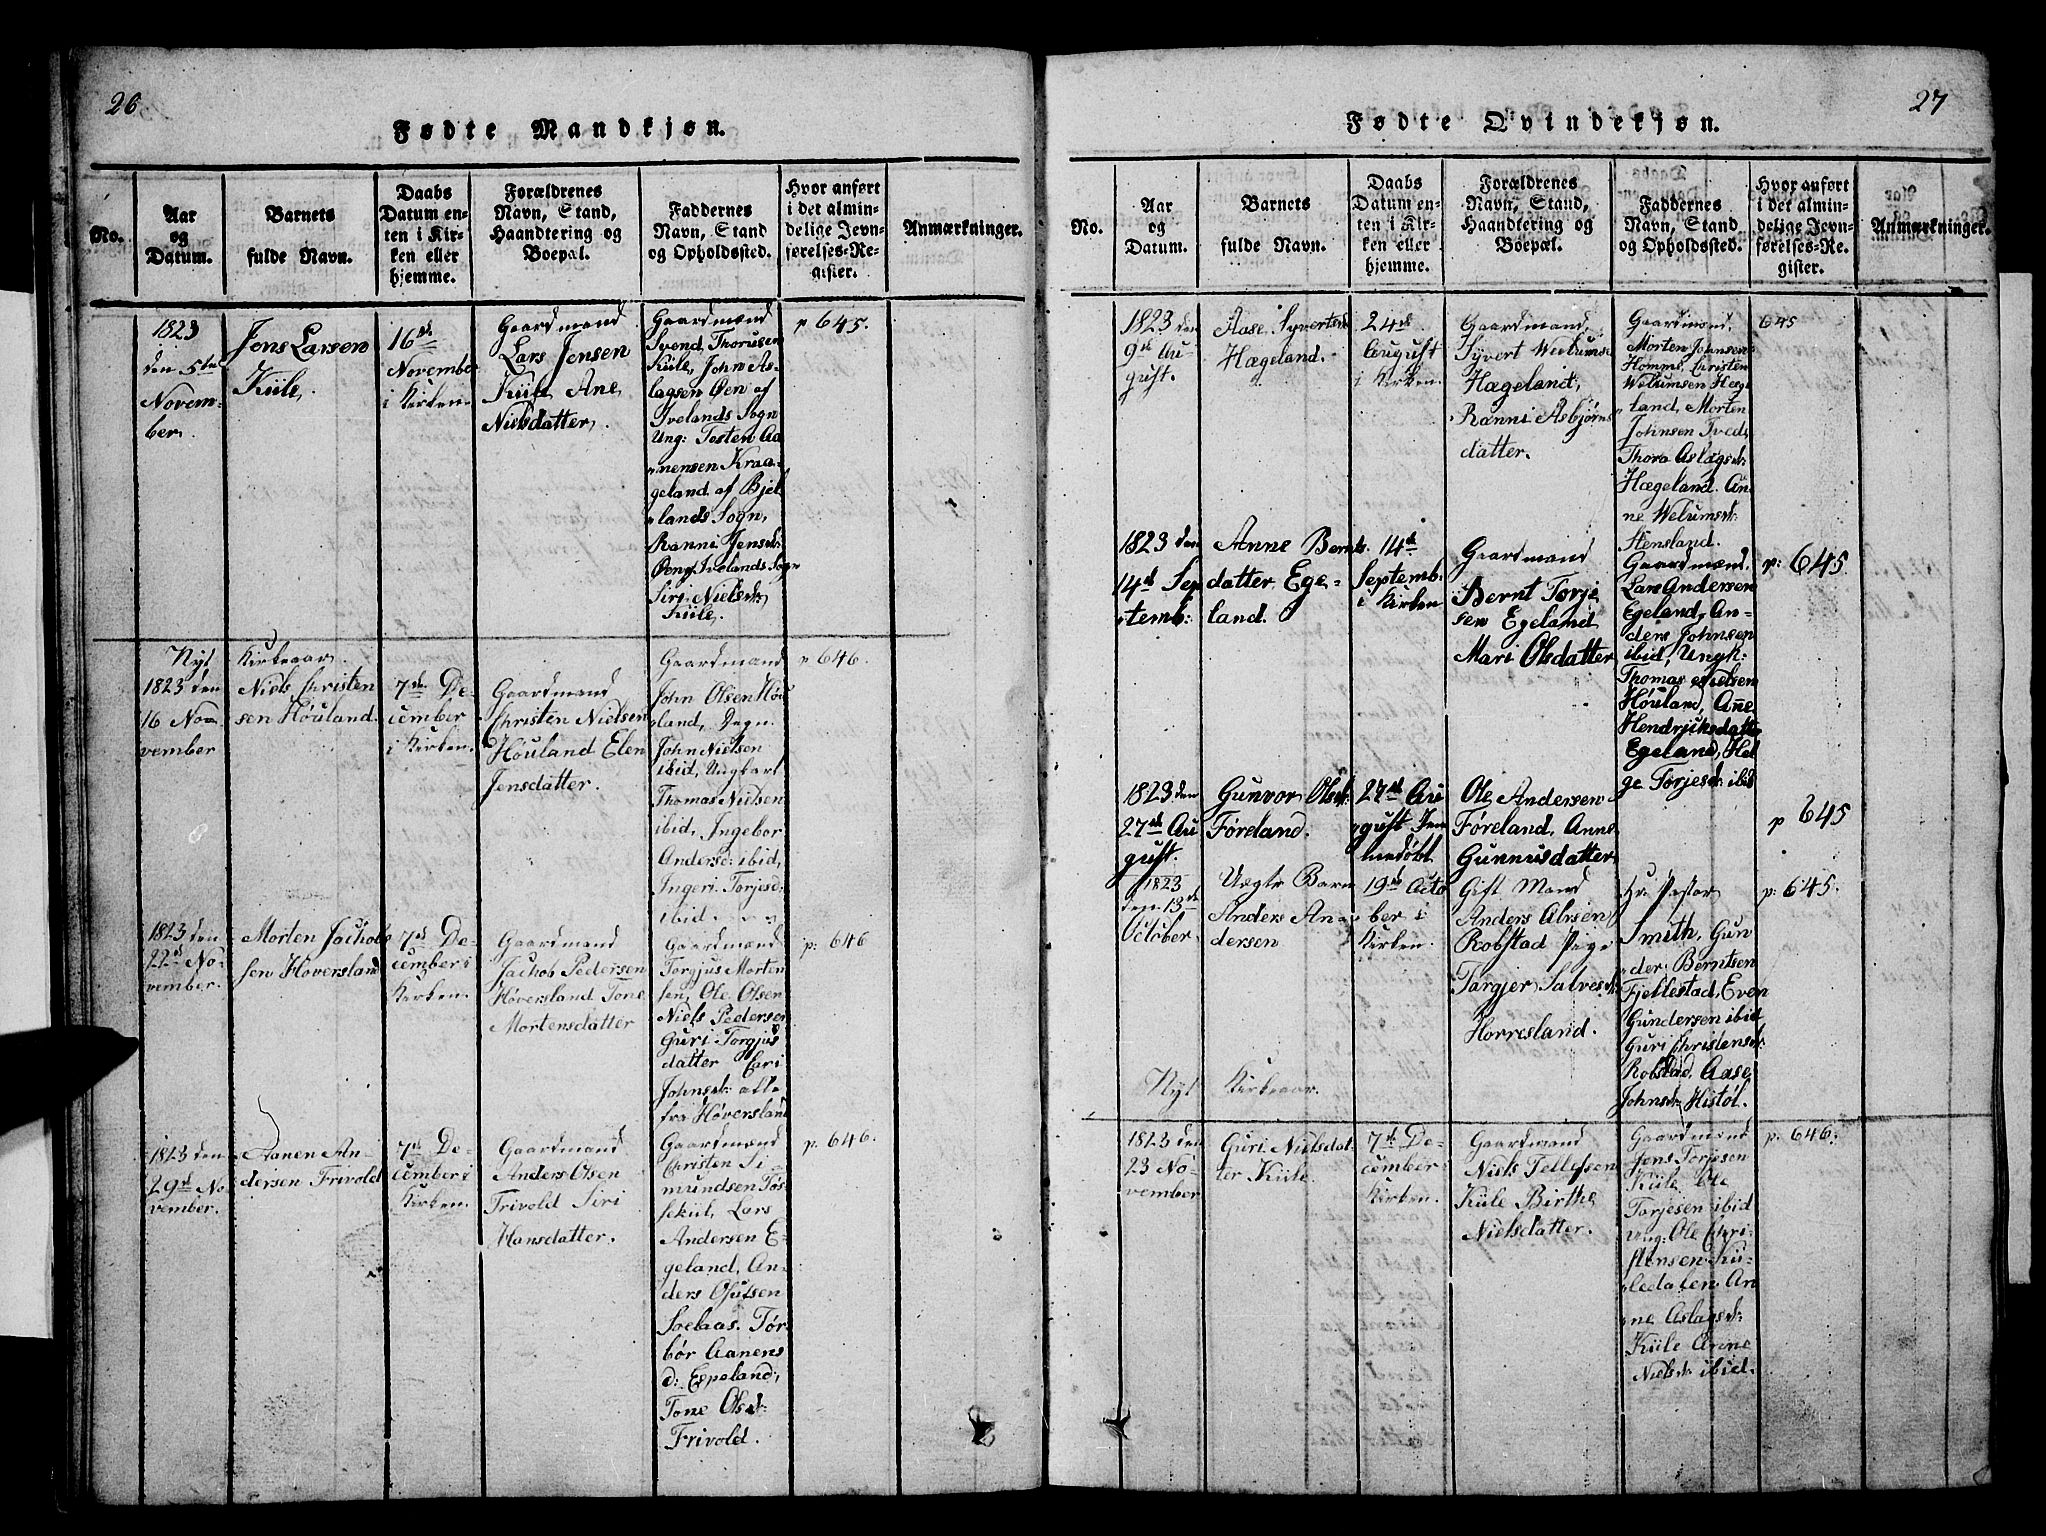 26
Fødte Mandkjøn.
No.
Aar
og
Datum.
Barnets
fulde Navn.
Daabs
Datum en-
ten i Kir-
ken eller
hjemme.
Forældrenes
Navn, Stand,
Haandtering og
Boepæl.
Faddernes
Navn, Stand
og Opholdssted.
Hvor anført
i det almin-
delige Jevn-
førelses-Re-
gister.
Anmærkninger.
1823
den 5te
Novem-
ber.
Jens Larsen
Kiile.
16de
Novembe
i Kirken.
Gaardmand
Lars Jensen
Kiile Ane
Nielsdatter.
Gaardmænd
Svend Thorusen
Kiile, John As-
lagsen Øen af
Ivelands Sogn
Ung: Testen Aa
nensen Kraa-
geland af Bjel
lands Sogn,
Ranni Jensd:
Øen Ivelands Sogn
Siri Nielsd:
Kiile.
p 645.
Nyt Kirkeaar.
1823 den
16 No-
vember
Niels Christen
sen Høuland.
7de De-
cember
i Kirken.
Gaardmand
Christen Nielsen
Høuland Elen
Jensdatter.
Gaardmænd
John Olsen Høu
land, Degn.
John Nielsen
ibid, Ungkarl
Thomas Nielsen
ibid, Ingebor
Andersd: ibid,
Ingeri Torjesd:
ibid.
p 646.
1823 den
22de No-
vember.
Morten Jachob
sen Høversland
7de De-
cember i
Kirken.
Gaardmand
Jachob Pedersen
Høversland Tone
Mortensdatter
Gaardmænd
Torgjus Morten
sen, Ole Olsen
Niels Pedersen
Guri Torgjus
datter Cari
Johnsd: alle
fra Høversland
p: 646
1823 den
29de No-
vember.
Aanen An-
dersen Frivold
7de De-
cember i
Kirken.
Gaardmand
Anders Olsen
Frivold Siri
Hansdatter.
Gaardmænd
Christen Si-
mundsenFøs
sekul, Lars
Andersen E-
geland, An-
ders Osulsen
Solaas. Tør
bør Aanens
d: Espeland,
Tone Olsd:
Frivold.
p. 646.
27
Fødte Qvindekjøn.
No.
Aar
og
Datum.
Barnets
fulde Navn.
Daabs
Datum en-
ten i Kir-
ken eller
hjemme.
Forældrenes
Navn, Stand,
Haandtering og
Boepæl.
Faddernes
Navn, Stand
og Opholdssted.
Hvor anført
i det almin-
delige Jevn-
førelses-Re-
gister.
Anmærkninger.
1823 den
9de Au-
gust.
Aase Syvertsd
Hægeland.
24de
August
i Kirken.
Gaardmand,
Syvert Welumse
Hægeland,
Ranni Asbjørns
datter.
Gaardmænd,
Morten Johnsen
Homme, Christen
Welumsen Hege
land, Morten
Johnsen Tved,
Thora Aslagsd:
Hægeland. An
ne Welumsd:
Stensland.
645
1823 den
14de Sep
temb:
Anne Bernts
datter Ege-
land.
14de
Septemb.
i Kirken
Gaardmand
Bernt Torje
sen Egeland
Mari Olsdatter
Gaardmænd,
Lars Andersen
Egeland, An-
ders Johnsen
ibid, Ungk:
Thomas Nielsen
Høuland, Ane
Hendriksdatte
Egeland, Hel
ge Torjesd: ibid
p: 645
1823 den
27de Au
gust.
Gunvor Olsd:
Føreland.
27de Au
gust
Ole Andersen
Føreland, Anne
Gunnusdatter
p 645
1823
den 13de
October
Uegte Barn
Anders An-
dersen
19de Octo
ber i
Kirken.
Gift Mand
Anders Alvsen
Robstad Pige
Targjer Salvesd:
Horresland.
Hr. Pastor
Smith, Gun
der Berntsen
Fjellestad, Even
Gundersen ibid
Guri Christensd:
Robstad, Aase
Johnsd: Histøl.
p: 645.
Nyt Kirkeaar.
1823 den
23 No-
vember
Guri Nielsdat
ter Kiile
7de De-
cember i
Kirken.
Gaardmand
Niels Tellefsen
Kiile Birthe
Nielsdatter.
Gaardmænd
Jens Torjesen
Kiile Ole
Torjesen ibid
Ung: Ole Chri-
stensen Ku-
ledalen An
ne Aslagsd:
Kiile Anne
Nielsd: ibid.
p: 646.